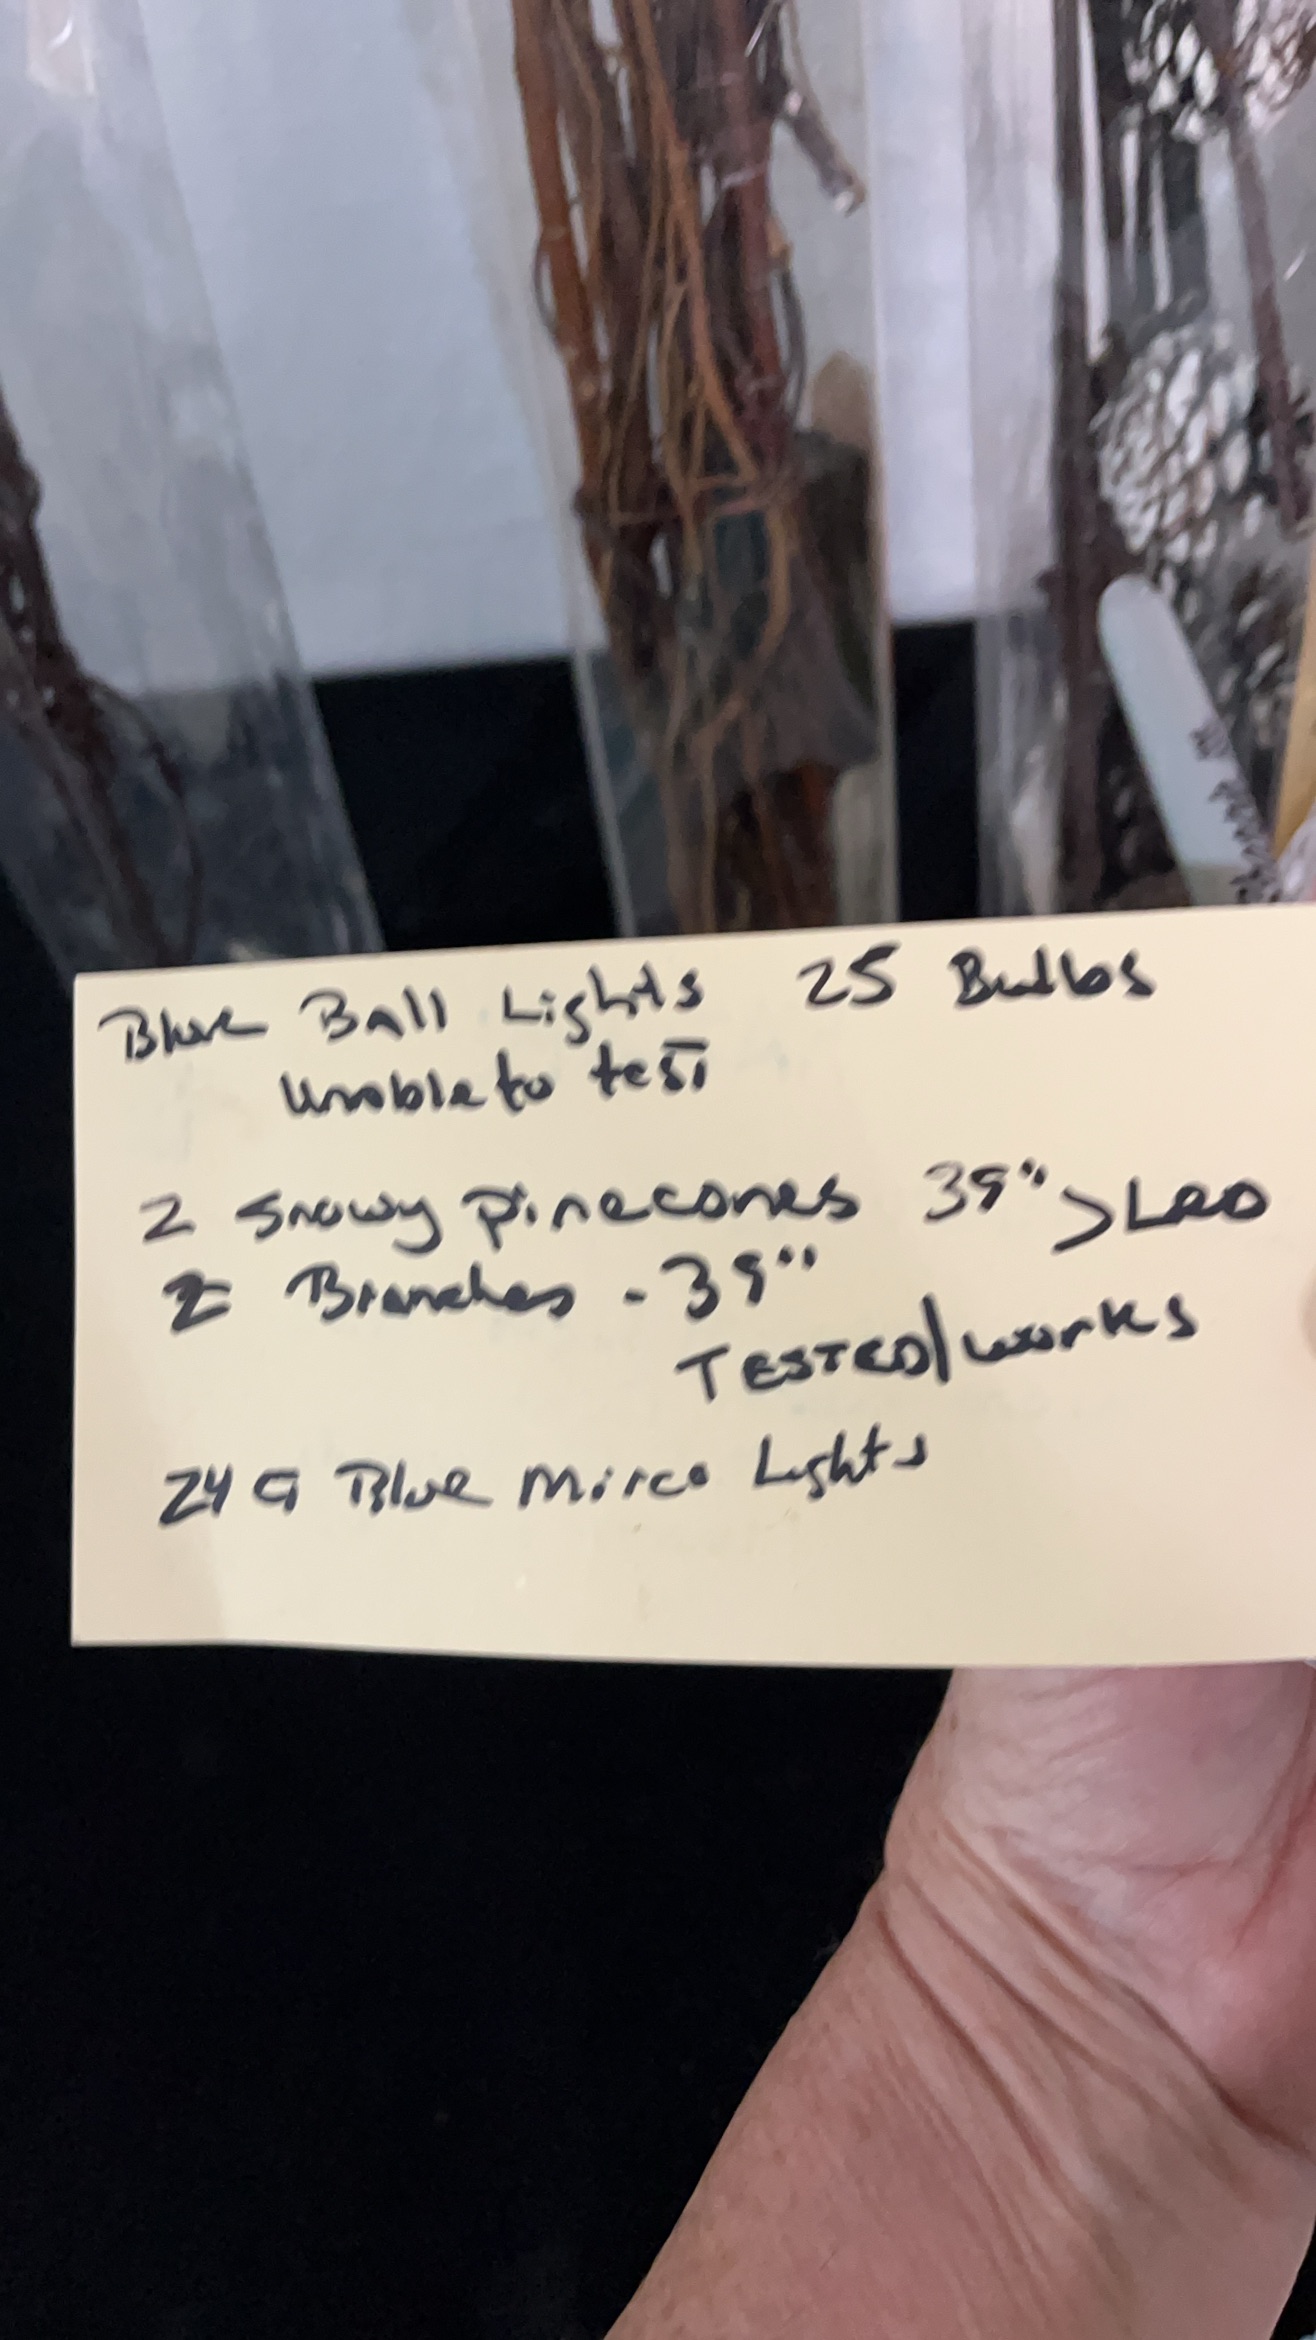 Blue Ball Lights 25 Bulbs
Unable to test
2 Snowy pinecones 39" > LED
2 Branches - 39"
TESTED/works
Blue Mirco Lights